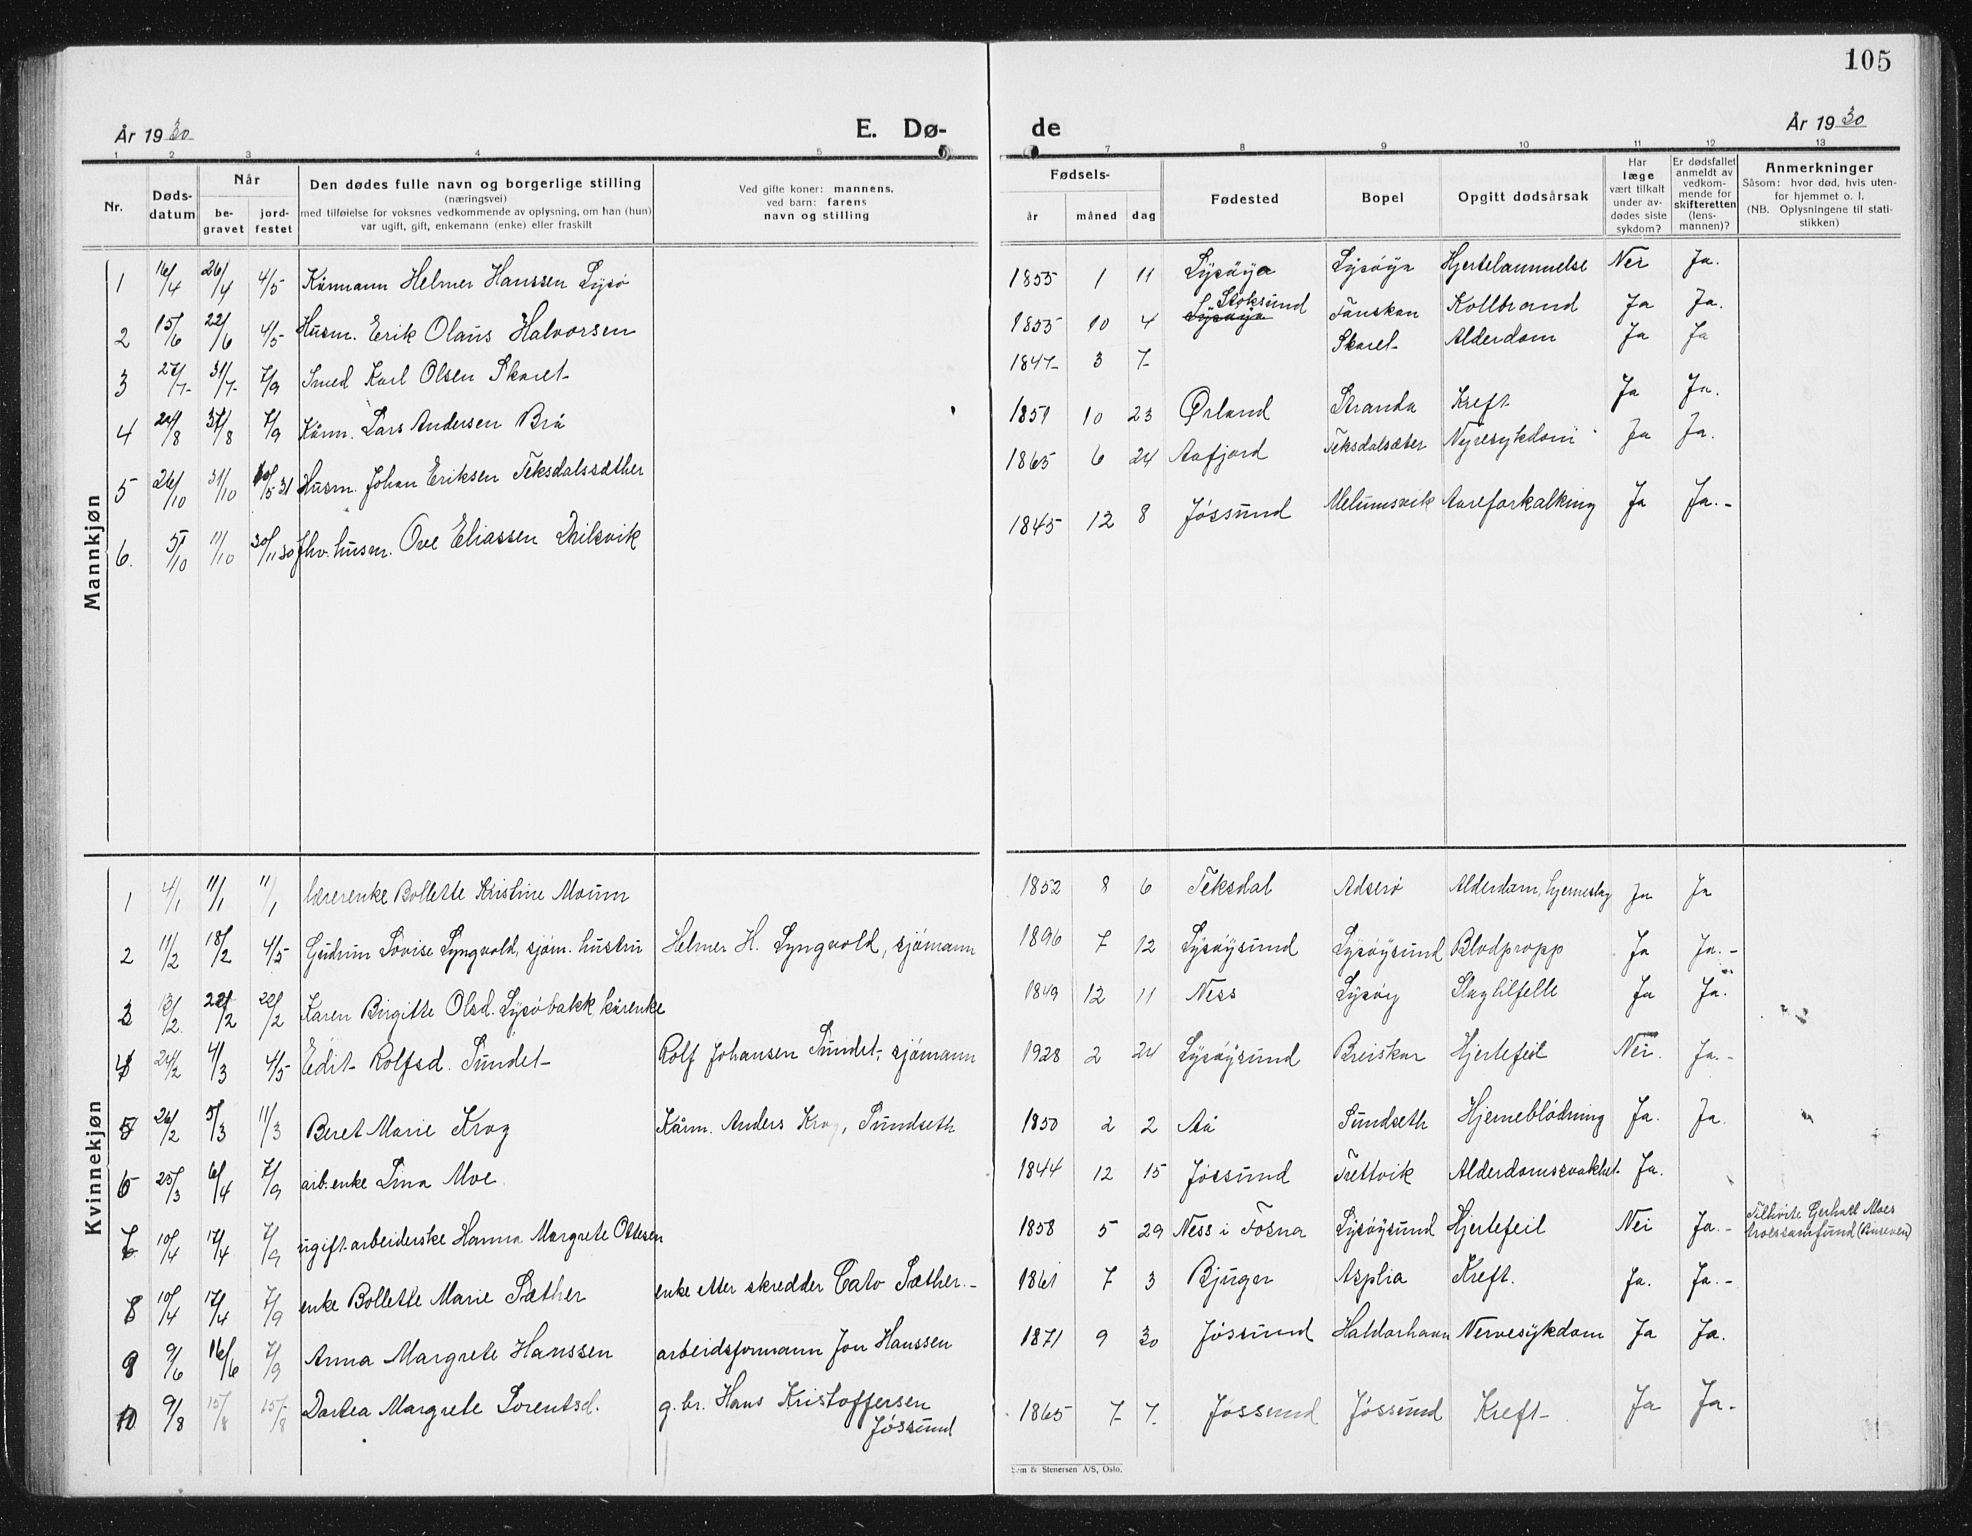 105
År 1930
E. Dø-
de
År 1930
1 2 3 4 5 7 8 9 10 11 12 13
Nr.
Døds-
datum
Når
be-
gravet
jord-
festet
Den dødes fulle navn og borgerlige stilling
(næringsvei)
med tilføielse for voksnes vedkommende av oplysning, om han (hun)
var ugift, gift, enkemann (enke) eller fraskilt
Ved gifte koner: mannens,
ved barn: farens
navn og stilling
Fødsels-
år
måned
dag
Fødested
Bopel
Opgitt dødsårsak
Har
læge
vært tilkalt
under av-
dødes siste
sykdom?
Er dødsfallet
anmeldt av
vedkom-
mende for
skifteretten
(lens-
mannen)?
Anmerkninger
Såsom: hvor død, hvis uten-
for hjemmet o. l.
(NB. Oplysningene til stati-
stikken)
Mannkjøn
1 16/4 26/4 4/5 Kårmann Helmer Hanssen Lysø 1855 1 11 Lysøya Lysøya Hjertelammelse Nei Ja.
2 15/6 22/6 4/5 Husm. Erik Olaus Halvorsen 1855 10 4 Lysøya Stoksund Kollbrand Ja Ja.
3 27/7 31/7 7/9 Smed Karl Olsen Skaret 1847 3 7 Skaret Alderdom Ja Ja
4 7/9 Kårm. Lars Andersen Brå 1851 10 23 Ørland Stranda Kreft Ja Ja.
5 26/10 31/10 Husm. Johan Eriksen Teksdalssæther 1865 6 24 Aafjord Teksdalsæter Nyresykdom Ja Ja.
6. 5/10 11/10 30/11 30 fhv. husm. Ove Eliassen 1845 12 8 Jøssund Melumsvik Aareforkalking Ja Ja.-
Kvinnekjøn
1 4/1 11/1 11/1 lærerenke Bollette Kristine Moum 1852 8 6 Teksdal Adserø Alderdom, hjerneslag Ja Ja
2 11/2 18/2 4/5 Gudrun Lovise Lyngvold, sjøm. hustru Helmer H. Lyngvold, sjømann 1896 7 12 Lysøysund Lysøysund Blodpropp Ja Ja.-
3 13/2 22/2 22/2 Karen Birgitte Olsd. Lysøbakk kårenke 1849 12 11 Ness Lysøy Slagtilfelle Ja Ja.
4 24/2 4/3 4/5 Edit Rolfsd. Sundet Rolf Johansen Sundet, sjømann 1928 2 24 Lysøysund Breiskar Hjertefeil Nei. Ja.-
5 26/2 5/3 11/3 Beret Marie Krog Kårm. Anders Krog, Sundseth 1850 2 2 Aa Sundseth Hjerneblødning Ja. Ja.
6 25/3 6/4 7/9 arb.enke Lina Moe 1844 12 15 Jøssund Tettvik Alderdomssvakhet Ja.
10/4 17/4 7/9 ugift arbeiderske Hanna Margrete Ottesen 1858 5 29 Ness i Fosna Lysøysund Hjertefeil Nei Ja.- Tilhørte Gerhart Moes
troessamfund
8 10/4 17/4 7/9 enke Bollette Marie Sæther enke etter skredder Cato Sæther.- 1861 7 3 Bjugn Asplia Kreft. Ja. Ja.-
9 9/6 16/6 7/9 Anna Margrete Hanssen arbeidsformann Jon Hanssen 1871 9 30 Jøssund Haldorhavn Nervesykdom Ja Ja.
10 9/8 15/8 15/8 Dortea Margrete Lorentsd. g. br. Hans Kristoffersen 1865 7 7 Jøssund Jøssund Kreft Ja Ja.
Jøssund
Sem & Stenersen A/S, Oslo.